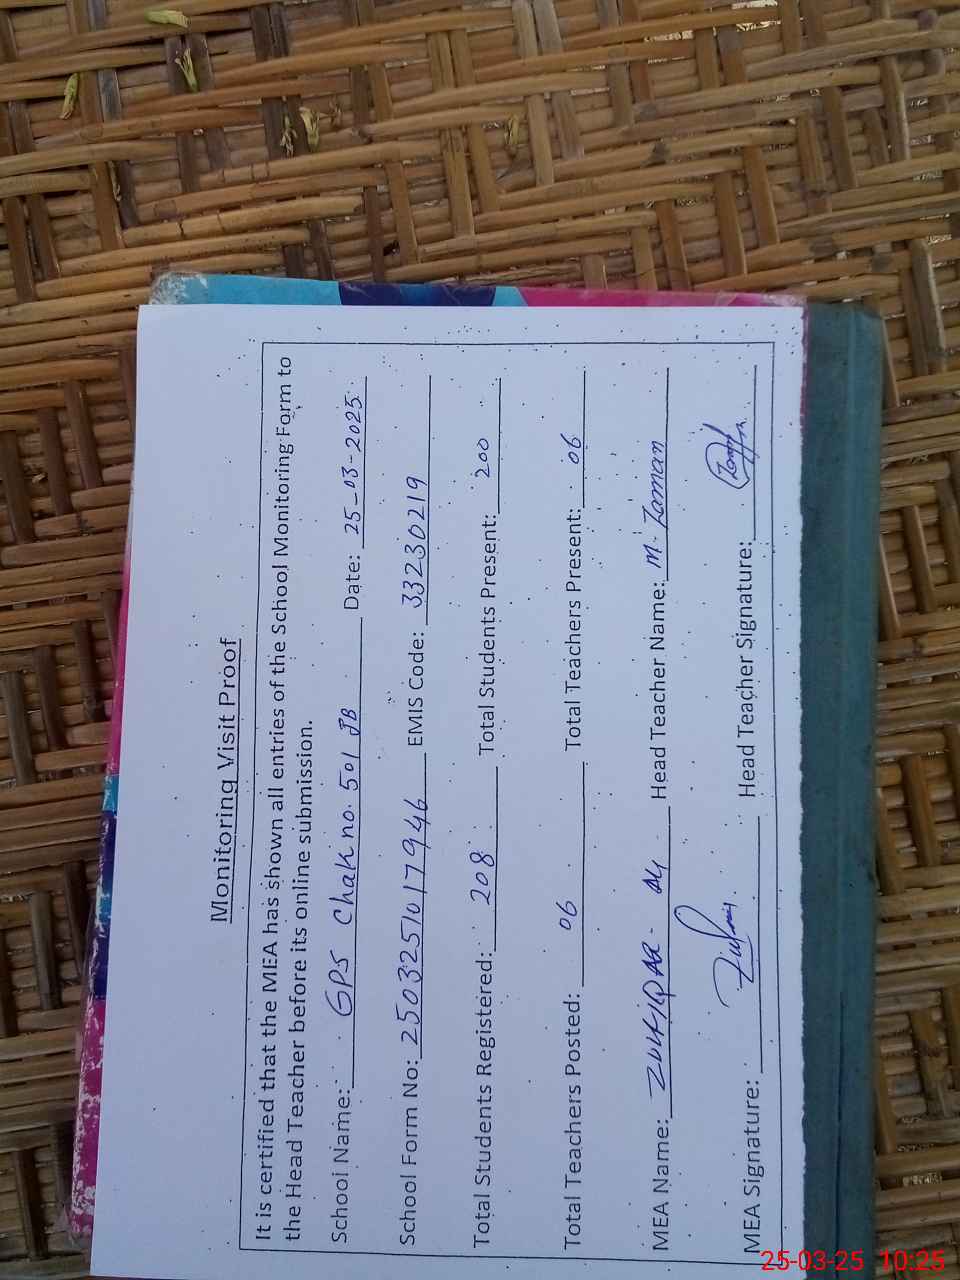 Monitoring Visit Proof
It is certified that the MEA has shown all entries of the School Monitoring Form to
the Head Teacher before its online submission.
School Name: GPS Chak no. 501 JB Date: 25-03-2025
School Form No: 2503251017946 EMIS Code: 33230219
Total Students Registered: 208 Total Students Present: 200
Total Teachers Posted: 06 Total Teachers Present: 06
MEA Name: Zulfiqar Ali Head Teacher Name: M. Zaman
MEA Signature: Head Teacher Signature:
25-03-25 10:25